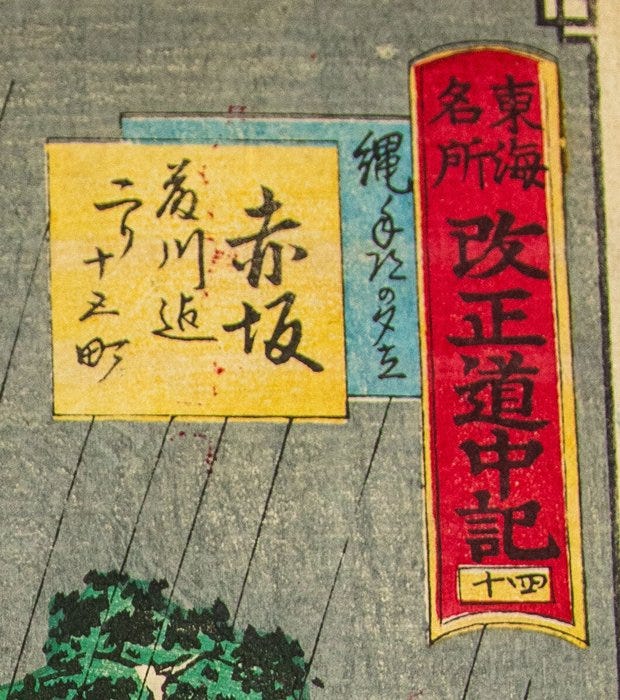 東海
名所
改正道中記
縄手道の夕立
赤坂
藤川迄
二り十五町